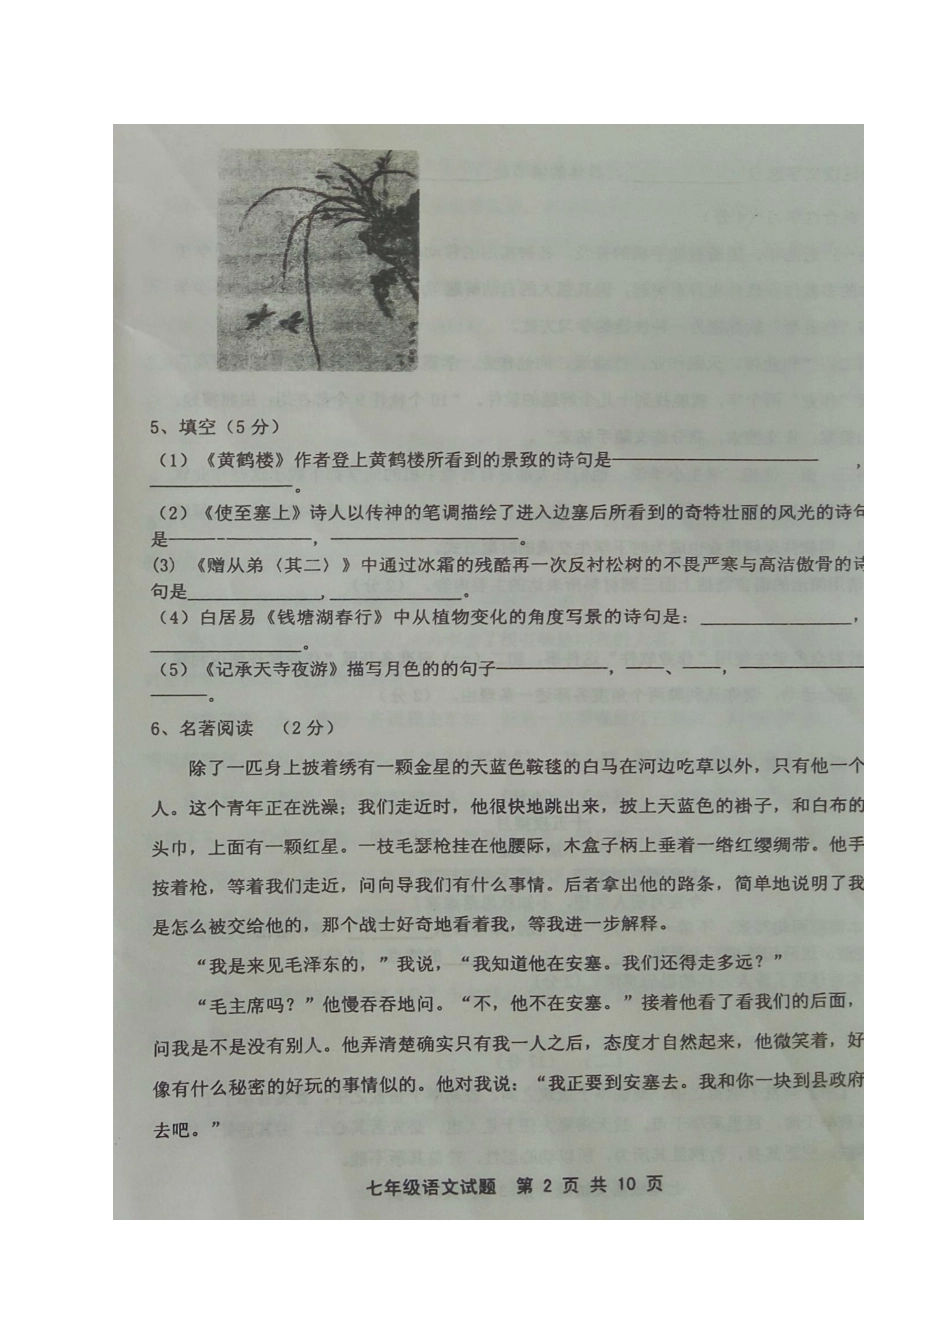 5、填空（5 分）
（1）《黄鹤楼》作者登上黄鹤楼所看到的景致的诗句是————————————，
——————————。
（2）《使至塞上》诗人以传神的笔调描绘了进入边塞后所看到的奇特壮丽的风光的诗句
是——————————，————————————。
(3) 《赠从弟〈其二〉》中通过冰霜的残酷再一次反衬松树的不畏严寒与高洁傲骨的诗
句是_______________,______________。
（4）白居易《钱塘湖春行》中从植物变化的角度写景的诗句是：________________，
________________。
（5）《记承天寺夜游》描写月色的的句子————————，———、———，————————
————。
6、名著阅读 （2 分）
除了一匹身上披着绣有一颗金星的天蓝色鞍毯的白马在河边吃草以外，只有他一个
人。这个青年正在洗澡；我们走近时，他很快地跳出来，披上天蓝色的褂子，和白布的
头巾，上面有一颗红星。一枝毛瑟枪挂在他腰际，木盒子柄上垂着一绺红缨绸带。他手
按着枪，等着我们走近，问向导我们有什么事情。后者拿出他的路条，简单地说明了我
是怎么被交给他的，那个战士好奇地看着我，等我进一步解释。
“我是来见毛泽东的，”我说，“我知道他在安塞。我们还得走多远？”
“毛主席吗？”他慢吞吞地问。“不，他不在安塞。”接着他看了看我们的后面，
问我是不是没有别人。他弄清楚确实只有我一人之后，态度才自然起来，他微笑着，好
像有什么秘密的好玩的事情似的。他对我说：“我正要到安塞去。我和你一块到县政府
去吧。”
七年级语文试题 第 2 页 共 10 页